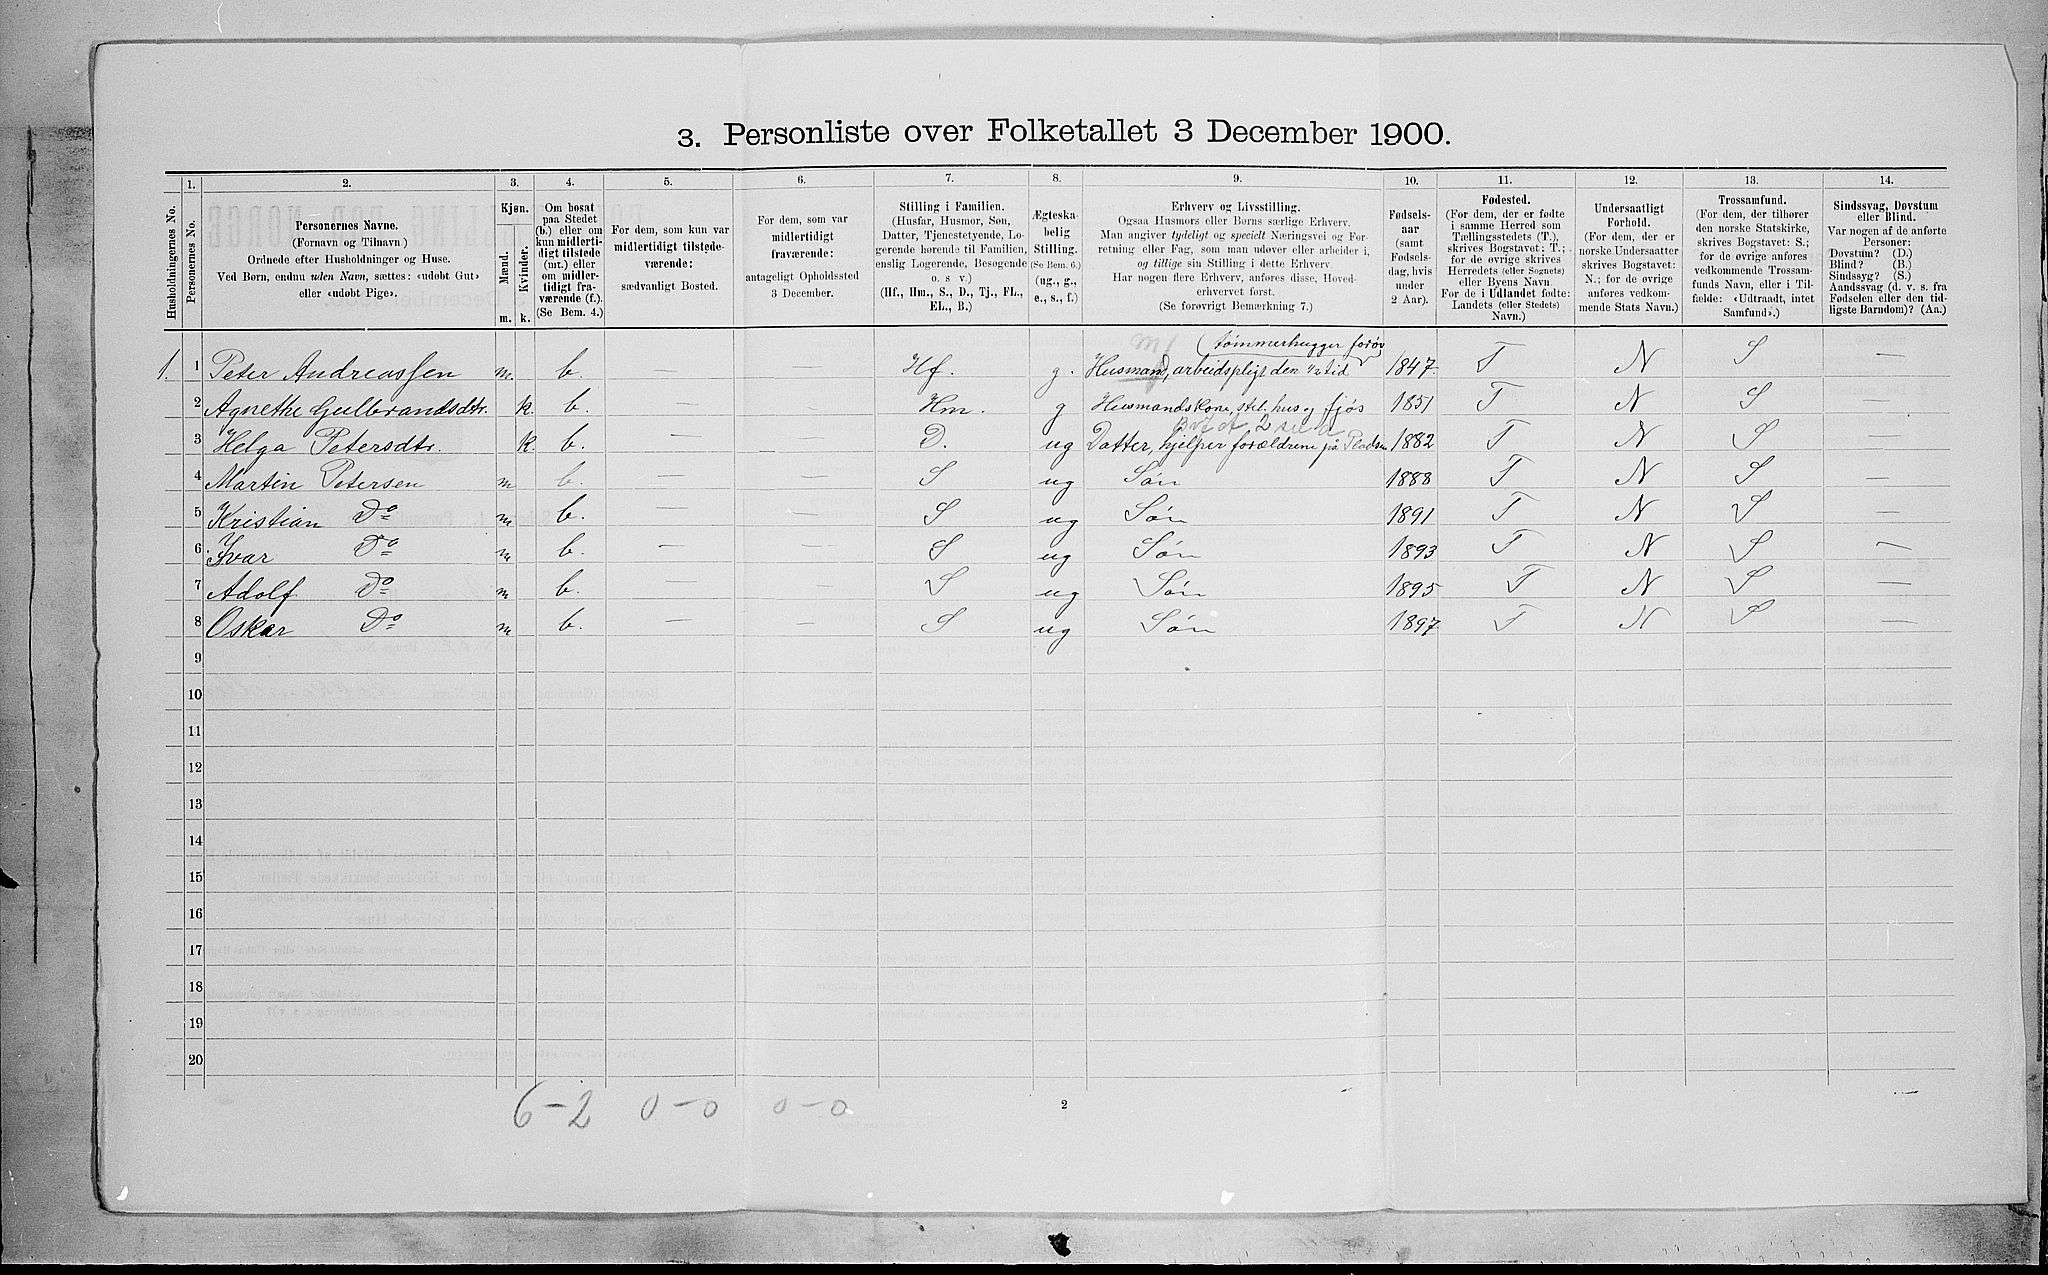 3. Personliste over Folketallet 3 December 1900.
Husholdningernes No.
1.
Personernes No.
2.
Personernes Navne.
(Fornavn og Tilnavn.)
Ordnede efter Husholdninger og Huse.
Ved Børn, endnu uden Navn, sættes: «udøbt Gut»
eller «udøbt Pige».
3.
Kjøn.
Mænd.
Kvinder.
m. k.
4.
Om bosat
paa Stedet
(b.) eller om
kun midlerti-
digt tilstede
(mt.) eller
om midler-
tidigt fra-
værende (f.).
(Se Bem. 4.)
5.
For dem, som kun var
midlertidigt tilstede-
værende:
sædvanligt Bosted.
6.
For dem, som var
midlertidigt
fraværende:
antageligt Opholdssted
3 December.
7.
Stilling i Familien.
(Husfar, Husmor, Søn,
Datter, Tjenestetyende, Lo-
gerende hørende til Familien,
enslig Logerende, Besøgende
o. s v.)
(Hf., Hm., S., D., Tj., FL.,
EL., B.)
8.
Ægteska-
belig
Stilling.
(Se Bem. 6.)
(ug., g.,
e., s., f.)
9.
Erhverv og Livsstilling.
Ogsaa Husmors eller Børns særlige Erhverv.
Man angiver tydeligt og specielt Næringsvei og For-
retning eller Fag, som man udøver eller arbeider i,
og tillige sin Stilling i dette Erhverv.
Har nogen flere Erhverv, anføres disse, Hoved-
erhvervet først.
(Se forøvrigt Bemærkning 7.)
10.
Fødsels-
aar
(samt
Fødsels-
dag, hvis
under
2 Aar).
11.
Fødested.
(For dem, der er fødte
i samme Herred som
Tællingsstedets (T.),
skrives Bogstavet: T.;
for de øvrige skrives
Herredets (eller Sognets)
eller Byens Navn.
For de i Udlandet fødte:
Landets (eller Stedets)
Navn.)
12.
Undersaatligt
Forhold.
(For dem, der er
norske Undersaatter
skrives Bogstavet:
N.; for de øvrige
anføres vedkom-
mende Stats Navn.)
13.
Trossamfund.
(For dem, der tilhører
den norske Statskirke,
skrives Bogstavet: S.;
for de øvrige anføres
vedkommende Trossam-
funds Navn, eller i Til-
fælde: «Udtraadt, intet
Samfund».)
14.
Sindssvag, Døvstum
eller Blind.
Var nogen af de anførte
Personer:
Døvstum? (D.)
Blind? (B.)
Sindssyg? (S.)
Aandssvag (d. v. s. fra
Fødselen eller den tid-
ligste Barndom)? (Aa.)
tømmerhugger forøv
1. 1 Peter Andreassen m. b. — — Hf. g. Husmand, arbeidspligt den 1/2 tid 1847. T N S —
2 Agnethe Gulbrandsdtr. k. b. — — Hm. g Husmandskone, stel. hus og fjøs 1851 T N S —
3 Helga Petersdtr. k. b. — — D. ug Datter, hjelper forældrene på Pladsen 1882 T N S —
4 Martin Petersen m b. — — S ug Søn 1888 T N S —
5 Kristian Do m b. — — S ug Søn 1891 T N S —
6 Ivar Do m b. — — S ug Søn 1893 T N S —
7 Adolf Do m b. — — S ug Søn 1895 T N S —
8 Oskar Do m b. — — S ug Søn 1897 T N S —
9
10
11
12
13
14
15
16
17
18
19
20
6-2 0-0 0-0
2